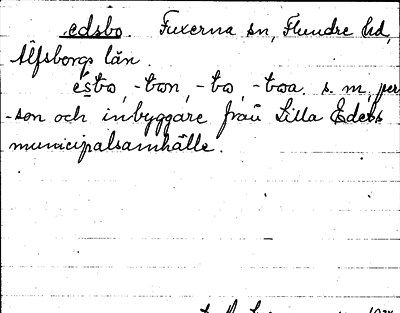 edsbo. Fuxerna sn, Flundre hd,
Älfsborgs län.
ęsbo, -bon, -bo, -boa. s. m, per
-son och inbyggare från Lilla Edets
municipalsamhälle.